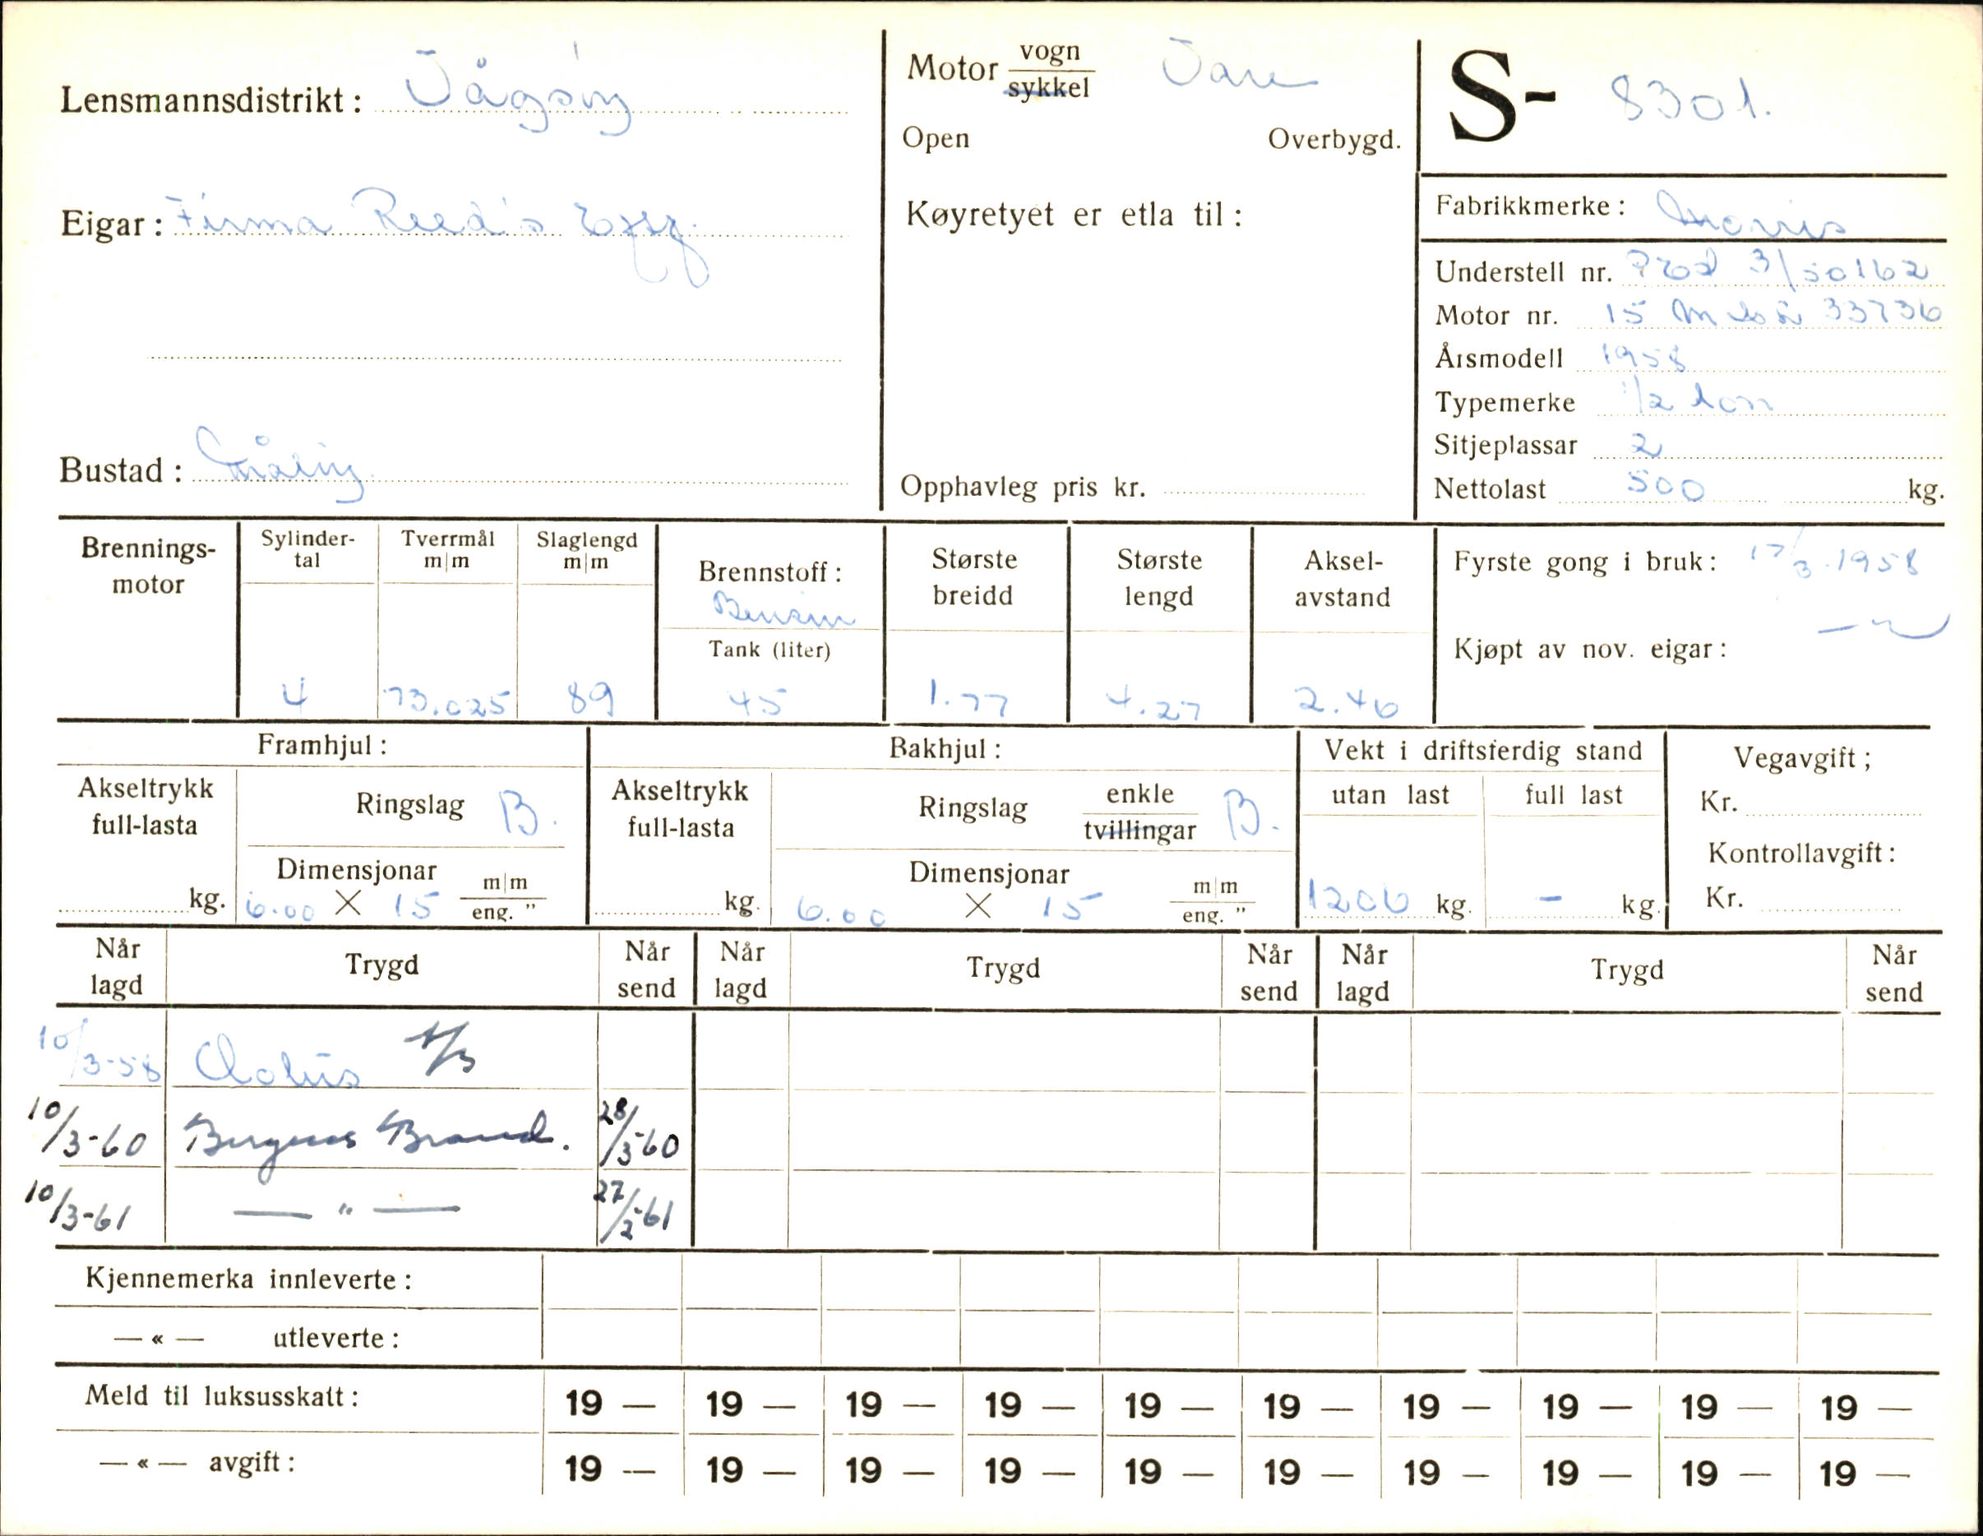 Lensmannsdistrikt: Vågsøy
Eigar: Firma Reed's Eftf.
Bustad: Måløy
Motor vogn
sykkel
Vare
Open Overbygd.
Køyretyet er etla til:
Opphavleg pris kr.
S- 8301.
Fabrikkmerke: Morris
Understell nr. 3/50162
Motor nr. 15 M 33736
Årsmodell 1958
Typemerke 1/2 tonn
Sitjeplassar 2
Nettolast 500 kg.
Brennings-
motor
Sylinder-
tal
4
Tverrmål
m|m
73.025
Slaglengd
m|m
89
Brennstoff:
Bensin
Tank (liter)
45
Største
breidd
1.77
Største
lengd
4.27
Aksel-
avstand
2.46
Fyrste gong i bruk: 17/3.1958
Kjøpt av nov. eigar: —"—
Framhjul:
Akseltrykk
full-lasta
kg.
Ringslag B.
Dimensjonar
6.00 X 15 m|m
eng. "
Bakhjul:
Akseltrykk
full-lasta
kg.
Ringslag enkle
tvillingar
B.
Dimensjonar
6.00 X 15 m|m
eng. "
Vekt i driftsferdig stand
utan last full last
1206 kg. - kg.
Vegavgift;
Kr.
Kontrollavgift:
Kr.
Når
lagd
Trygd
Når
send
Når
lagd
Trygd
Når
send
Når
lagd
Trygd
Når
send
10/3-58 A/S
10/3-60 Bergens Brand. 28/3-60
10/3-61 — " — 27/2-61
Kjennemerka innleverte:
— « — utleverte:
Meld til luksusskatt: 19 — 19 — 19 — 19 — 19 — 19 — 19 — 19 — 19 — 19 —
— « — avgift: 19 — 19 — 19 — 19 — 19 — 19 — 19 — 19 — 19 — 19 —